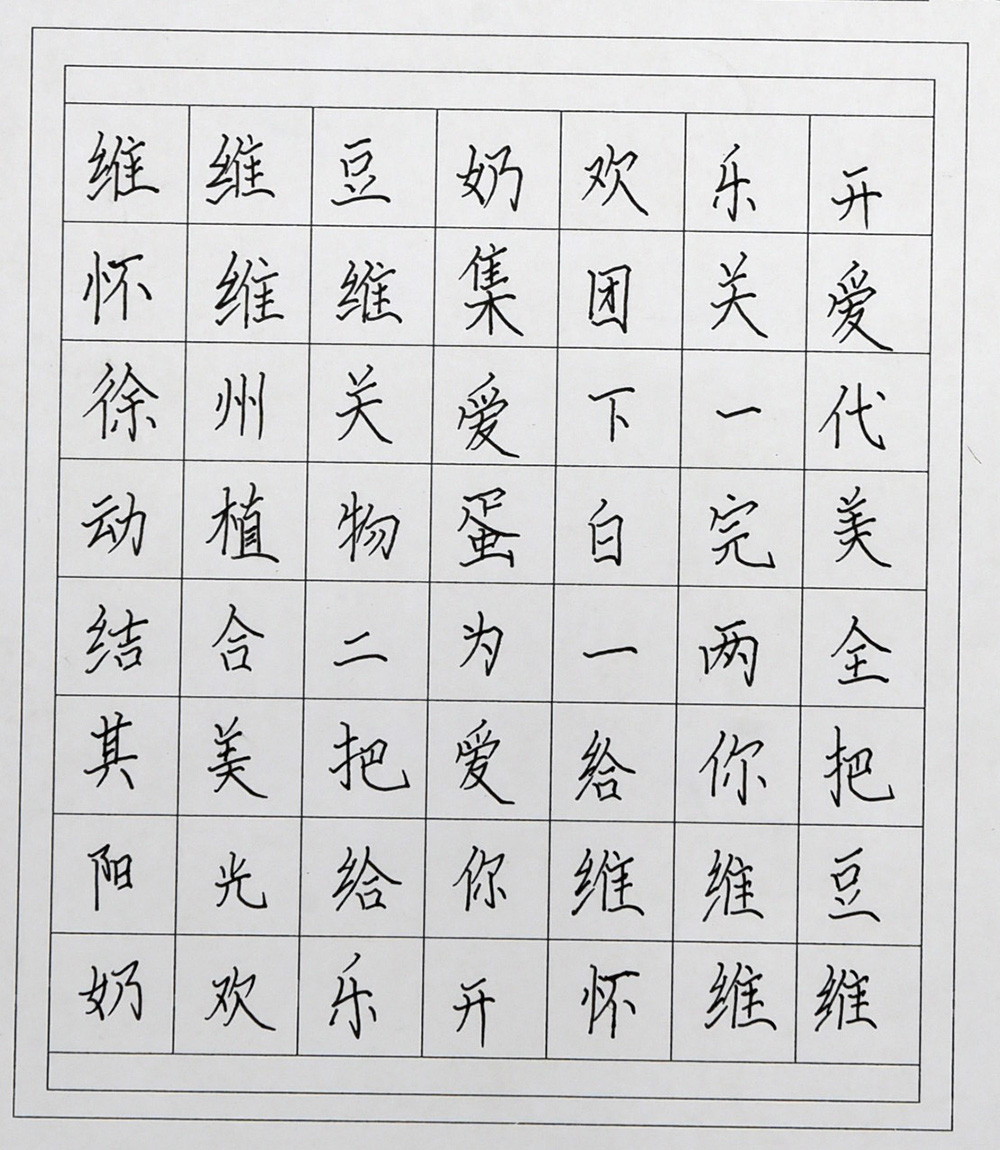 维维豆奶欢乐开
怀维维集团关爱
徐州关爱下一代
动植物蛋白完美
结合二为一两全
其美把爱给你把
阳光给你维维豆
奶欢乐开怀维维